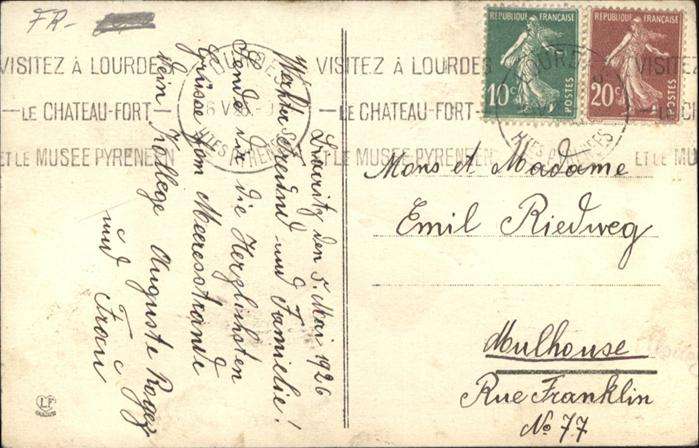 FR-
RÉPUBLIQUE FRANÇAISE
10c POSTES
RÉPUBLIQUE FRANÇAISE
20c POSTES
VISITEZ À LOURDES
LE CHATEAU-FORT
ET LE MUSEE PYRENEEN
LOURDES
HTES PYRENEES
VISITEZ À LOURDES
LE CHATEAU-FORT
ET LE MUSEE PYRENEEN
LOURDES
HTES PYRENEES
VISITEZ
LE CHA
ET LE MUS
den 5. Mai 1926
Werther Freund und Familie!
Sende dir die Herzlichsten
Grüsse vom Meeresstrande
Dein Kollege Auguste Rogez
und Frau
Mons et Madame
Emil Riedweg
Mulhouse
Rue Franklin
No 77
LF